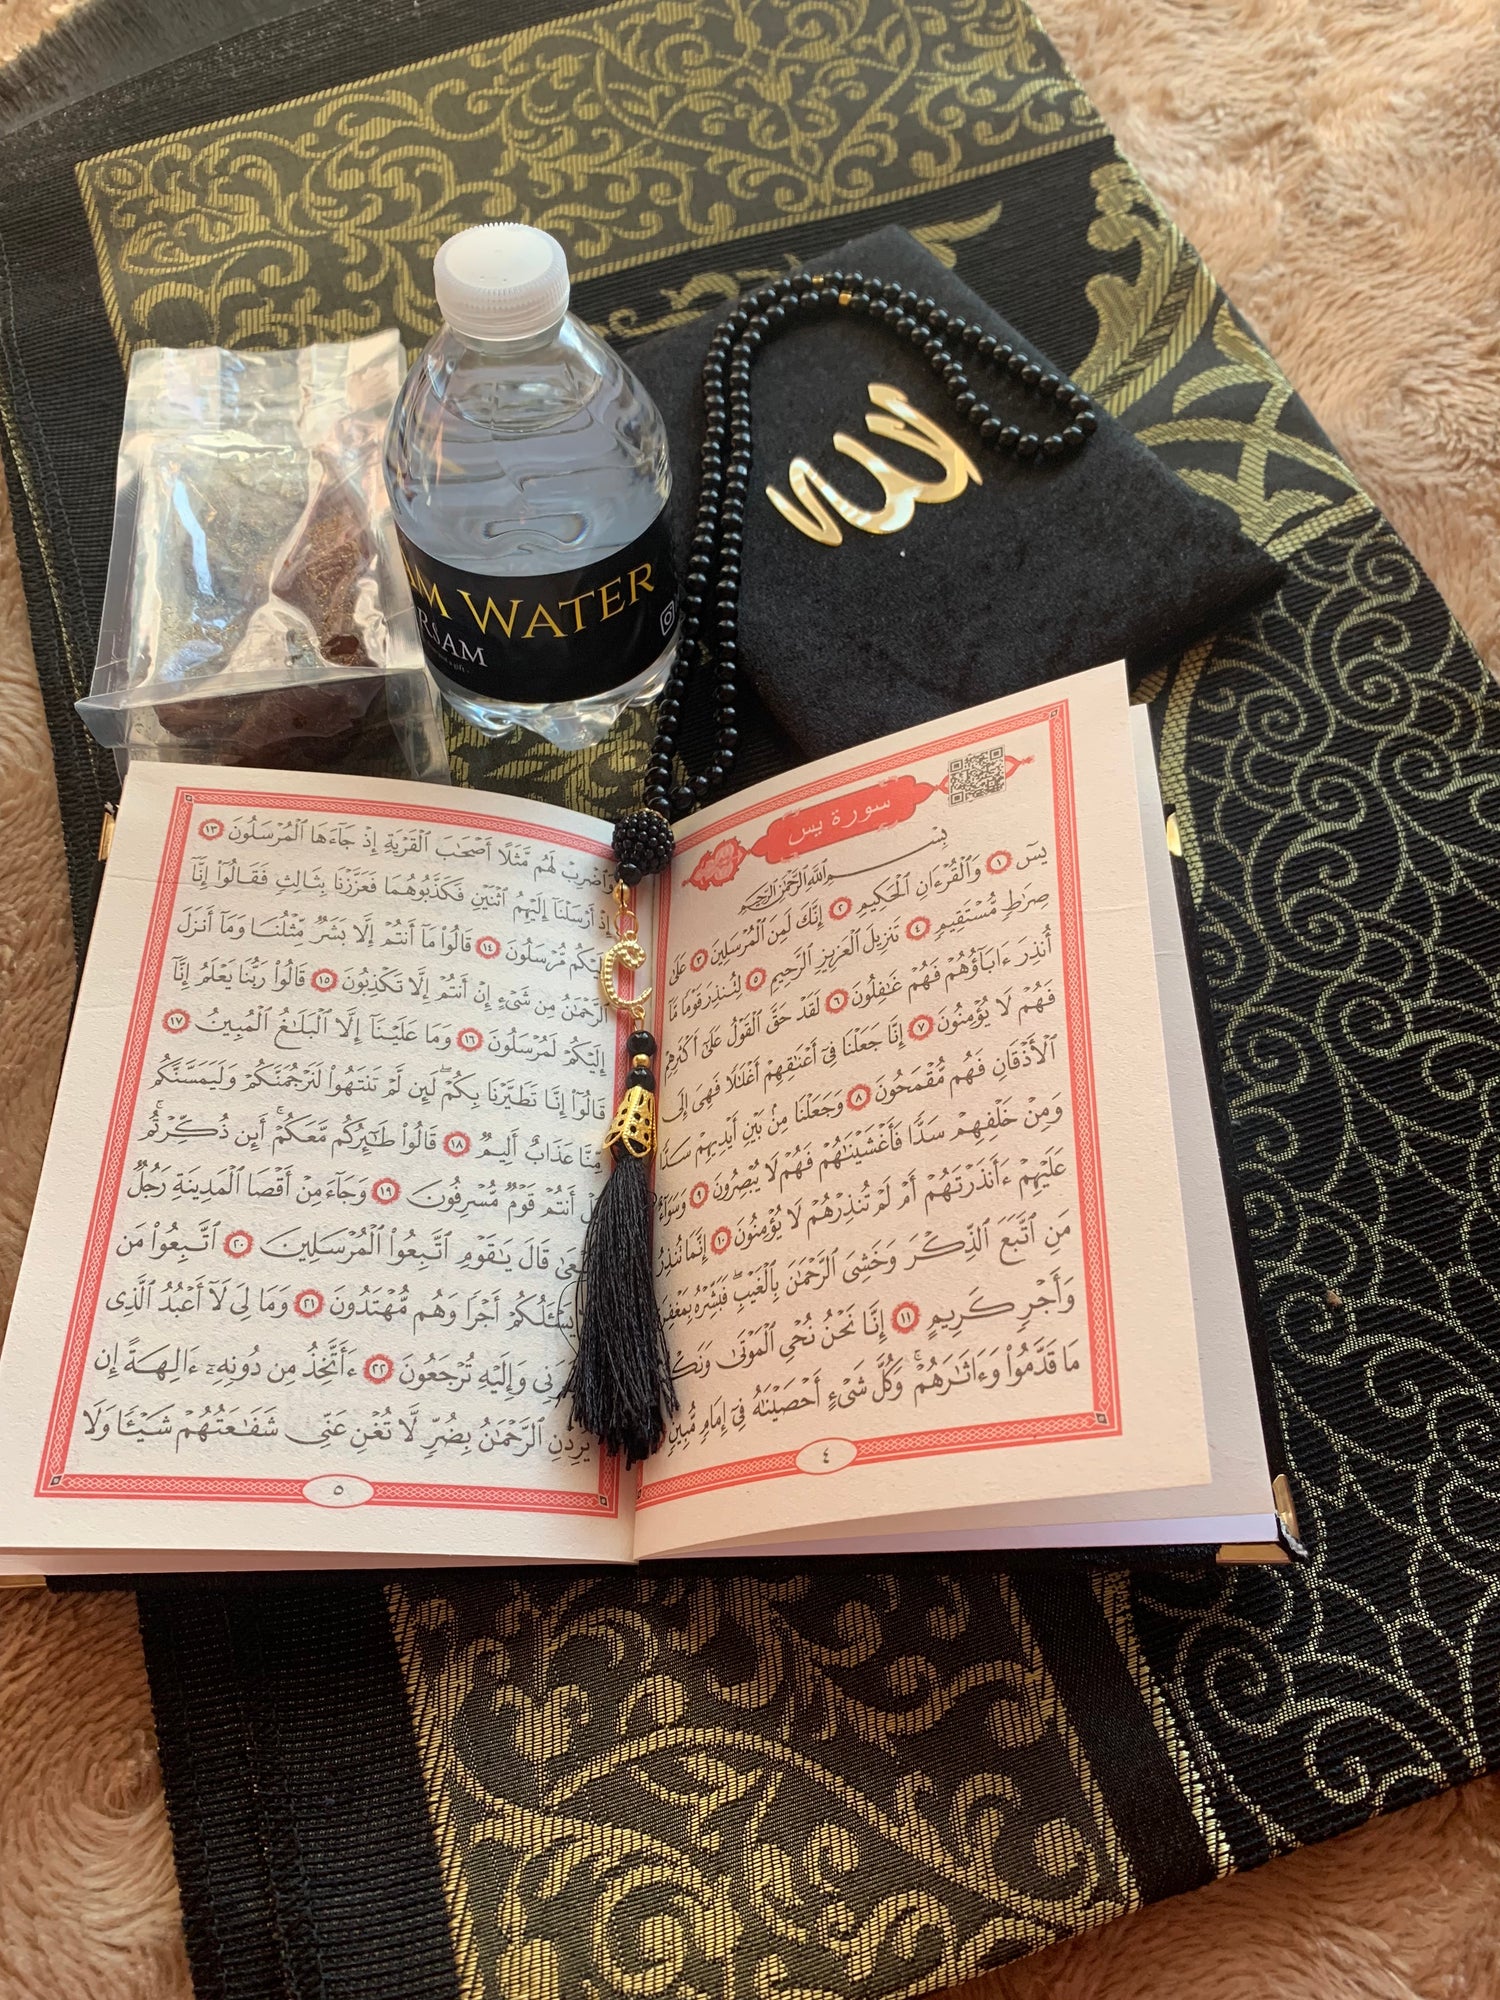 AM WATER
RSAM
الله
سورة يس
بِسْمِ اللَّهِ الرَّحْمَٰنِ الرَّحِيمِ
يسٓ ١ وَٱلْقُرْءَانِ ٱلْحَكِيمِ ٢ إِنَّكَ لَمِنَ ٱلْمُرْسَلِينَ ٣ عَلَىٰ
صِرَٰطٍ مُّسْتَقِيمٍ ٤ تَنزِيلَ ٱلْعَزِيزِ ٱلرَّحِيمِ ٥ لِتُنذِرَ قَوْمًا مَّآ
أُنذِرَ ءَابَآؤُهُمْ فَهُمْ غَٰفِلُونَ ٦ لَقَدْ حَقَّ ٱلْقَوْلُ عَلَىٰٓ أَكْثَرِهِمْ
فَهُمْ لَا يُؤْمِنُونَ ٧ إِنَّا جَعَلْنَا فِىٓ أَعْنَٰقِهِمْ أَغْلَٰلًا فَهِىَ إِلَى
ٱلْأَذْقَانِ فَهُم مُّقْمَحُونَ ٨ وَجَعَلْنَا مِنۢ بَيْنِ أَيْدِيهِمْ سَدًّا
وَمِنْ خَلْفِهِمْ سَدًّا فَأَغْشَيْنَٰهُمْ فَهُمْ لَا يُبْصِرُونَ ٩ وَسَوَآءٌ
عَلَيْهِمْ ءَأَنذَرْتَهُمْ أَمْ لَمْ تُنذِرْهُمْ لَا يُؤْمِنُونَ ١٠ إِنَّمَا تُنذِرُ
مَنِ ٱتَّبَعَ ٱلذِّكْرَ وَخَشِىَ ٱلرَّحْمَٰنَ بِٱلْغَيْبِ ۖ فَبَشِّرْهُ بِمَغْفِرَ
وَأَجْرٍ كَرِيمٍ ١١ إِنَّا نَحْنُ نُحْىِ ٱلْمَوْتَىٰ وَنَكْ
مَا قَدَّمُوا۟ وَءَاثَٰرَهُمْ ۚ وَكُلَّ شَىْءٍ أَحْصَيْنَٰهُ فِىٓ إِمَامٍ مُّبِينٍ
٤
وَٱضْرِبْ لَهُم مَّثَلًا أَصْحَٰبَ ٱلْقَرْيَةِ إِذْ جَآءَهَا ٱلْمُرْسَلُونَ ١٣
إِذْ أَرْسَلْنَآ إِلَيْهِمُ ٱثْنَيْنِ فَكَذَّبُوهُمَا فَعَزَّزْنَا بِثَالِثٍ فَقَالُوٓا۟ إِنَّآ
إِلَيْكُم مُّرْسَلُونَ ١٤ قَالُوا۟ مَآ أَنتُمْ إِلَّا بَشَرٌ مِّثْلُنَا وَمَآ أَنزَلَ
ٱلرَّحْمَٰنُ مِن شَىْءٍ إِنْ أَنتُمْ إِلَّا تَكْذِبُونَ ١٥ قَالُوا۟ رَبُّنَا يَعْلَمُ إِنَّآ
إِلَيْكُمْ لَمُرْسَلُونَ ١٦ وَمَا عَلَيْنَآ إِلَّا ٱلْبَلَٰغُ ٱلْمُبِينُ ١٧
قَالُوٓا۟ إِنَّا تَطَيَّرْنَا بِكُمْ ۖ لَئِن لَّمْ تَنتَهُوا۟ لَنَرْجُمَنَّكُمْ وَلَيَمَسَّنَّكُم
مِّنَّا عَذَابٌ أَلِيمٌ ١٨ قَالُوا۟ طَٰٓئِرُكُم مَّعَكُمْ ۚ أَئِن ذُكِّرْتُم ۚ
بَلْ أَنتُمْ قَوْمٌ مُّسْرِفُونَ ١٩ وَجَآءَ مِنْ أَقْصَا ٱلْمَدِينَةِ رَجُلٌ
يَسْعَىٰ قَالَ يَٰقَوْمِ ٱتَّبِعُوا۟ ٱلْمُرْسَلِينَ ٢٠ ٱتَّبِعُوا۟ مَن
لَّا يَسْـَٔلُكُمْ أَجْرًا وَهُم مُّهْتَدُونَ ٢١ وَمَا لِىَ لَآ أَعْبُدُ ٱلَّذِى
فَطَرَنِى وَإِلَيْهِ تُرْجَعُونَ ٢٢ ءَأَتَّخِذُ مِن دُونِهِۦٓ ءَالِهَةً إِن
يُرِدْنِ ٱلرَّحْمَٰنُ بِضُرٍّ لَّا تُغْنِ عَنِّى شَفَٰعَتُهُمْ شَيْـًٔا وَلَا
٥